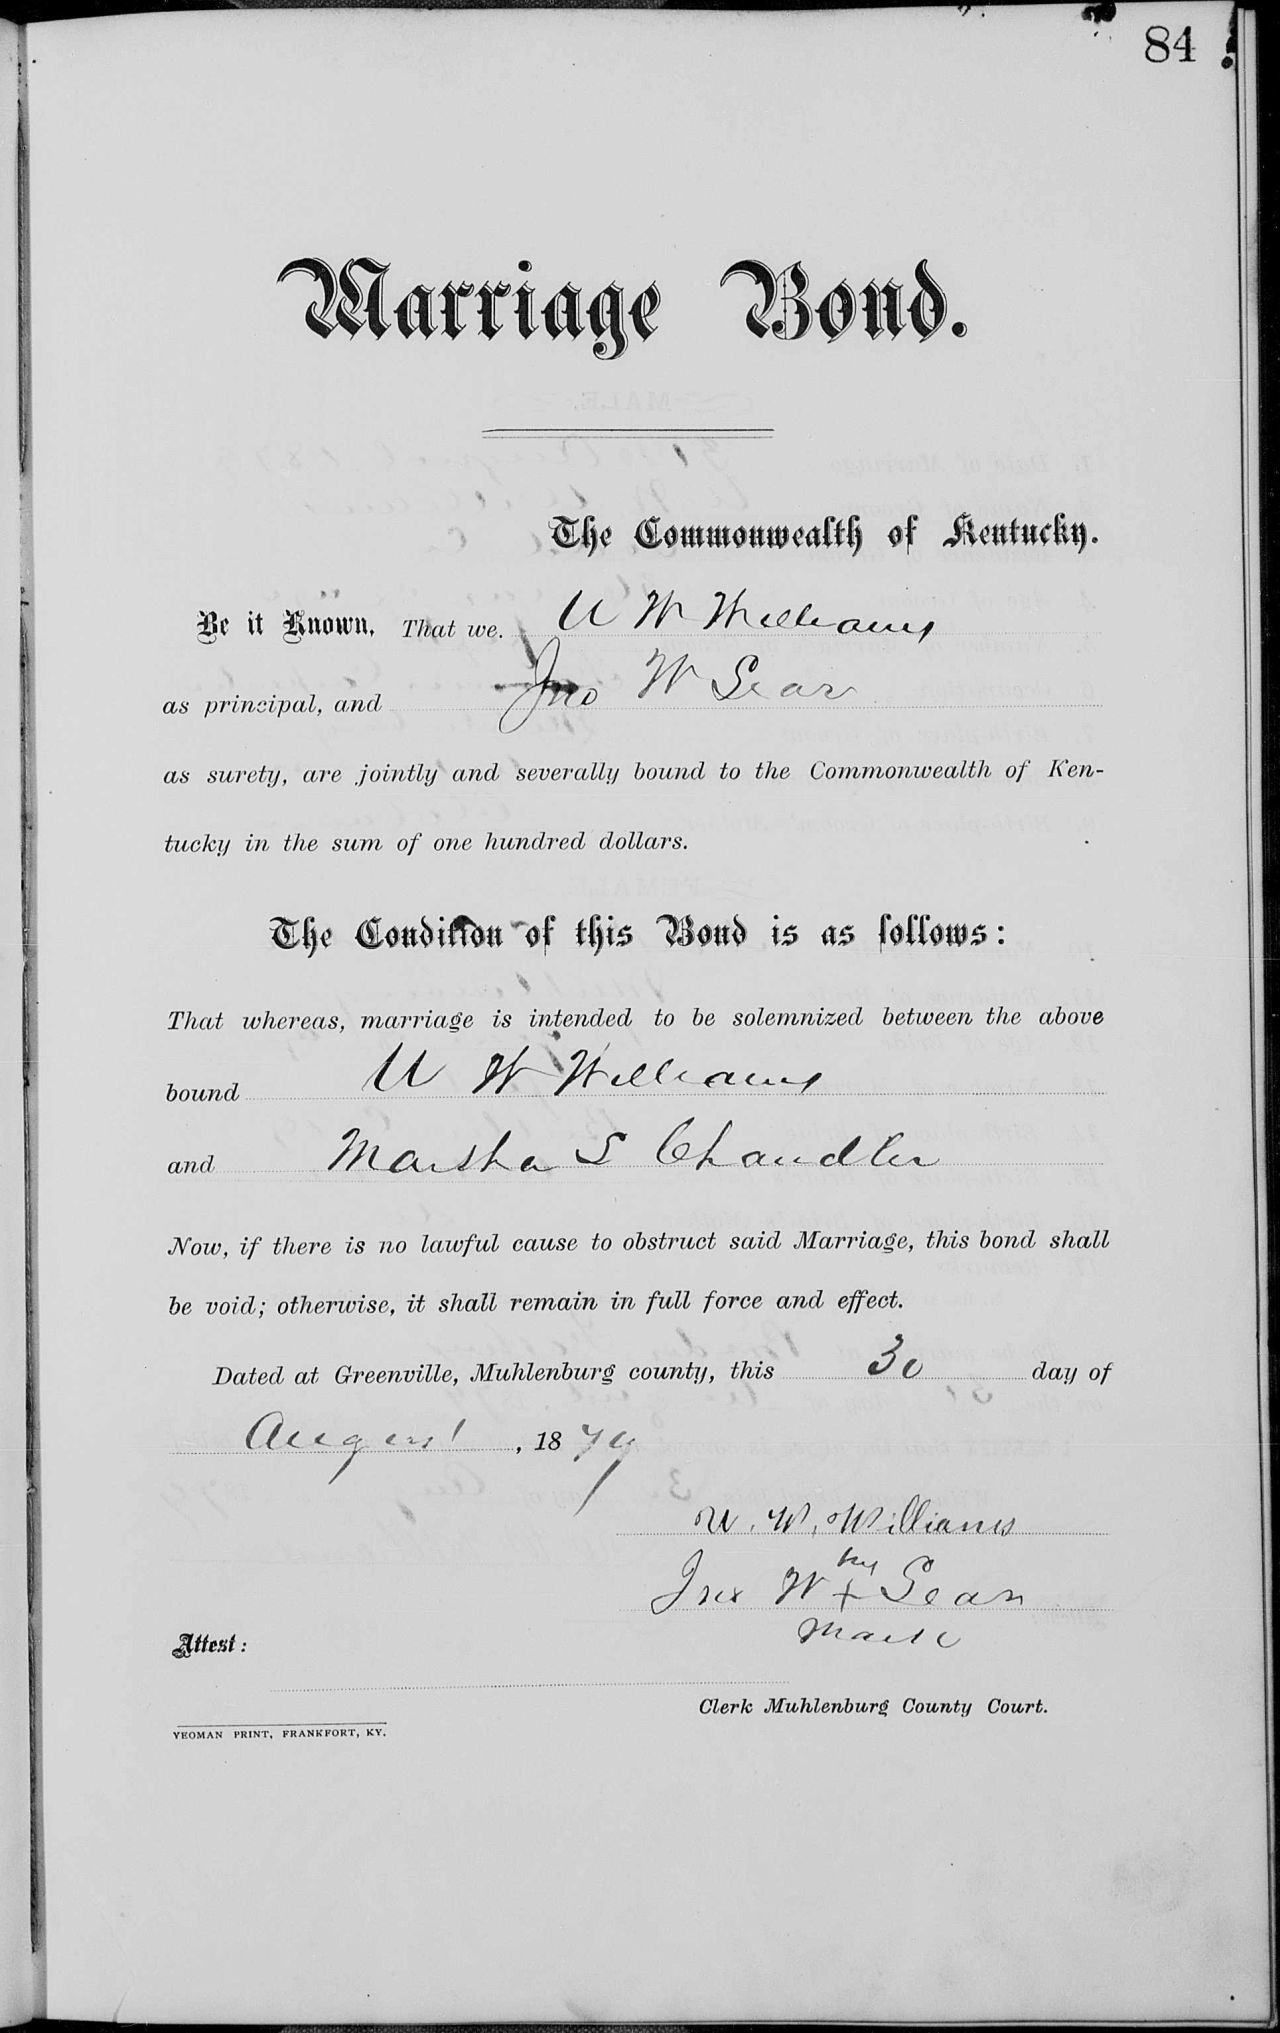 84
Marriage Bond.
The Commonwealth of Kentucky.
Be it Known, That we. U W Williams
as principal, and Jno W Sear
as surety, are jointly and severally bound to the Commonwealth of Ken-
tucky in the sum of one hundred dollars.
The Condition of this Bond is as follows:
That whereas, marriage is intended to be solemnized between the above
bound U W Williams
and Martha S Chandler
Now, if there is no lawful cause to obstruct said Marriage, this bond shall
be void; otherwise, it shall remain in full force and effect.
Dated at Greenville, Muhlenburg county, this 30 day of
August, 1879
U. W. Williams
his
Jno W + Sear
mark
Attest:
Clerk Muhlenburg County Court.
YEOMAN PRINT, FRANKFORT, KY.